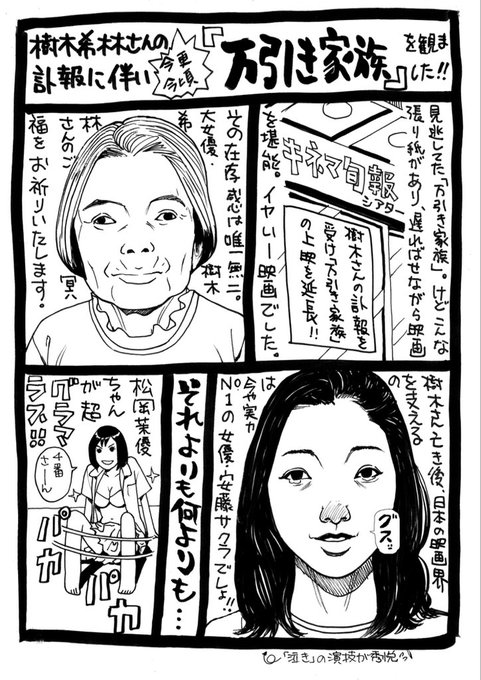 樹木希林さんの
訃報に伴い
今更
今頃
『万引き家族』
を観ま
した!!
見逃してた「万引き家族」。けどこんな
張り紙があり、遅ればせながら映画
を堪能。イヤいー映画でした。
キネマ旬報
シアター
樹木さんの訃報を
受け「万引き家族」
の上映を延長!!
その存在感は唯一無二。
大女優・樹木
希
林
さんのご冥
福をお祈りいたします。
樹木さん亡き後、日本の映画界
を支えるの
は
今や実力
No.1の女優・安藤サクラでしょ!!
グスッ
それよりも何よりも…
松岡茉優
ちゃん
が超
グラマ
ラス!!
4番
さーん
パカ
パカ
「泣き」の演技が秀悦